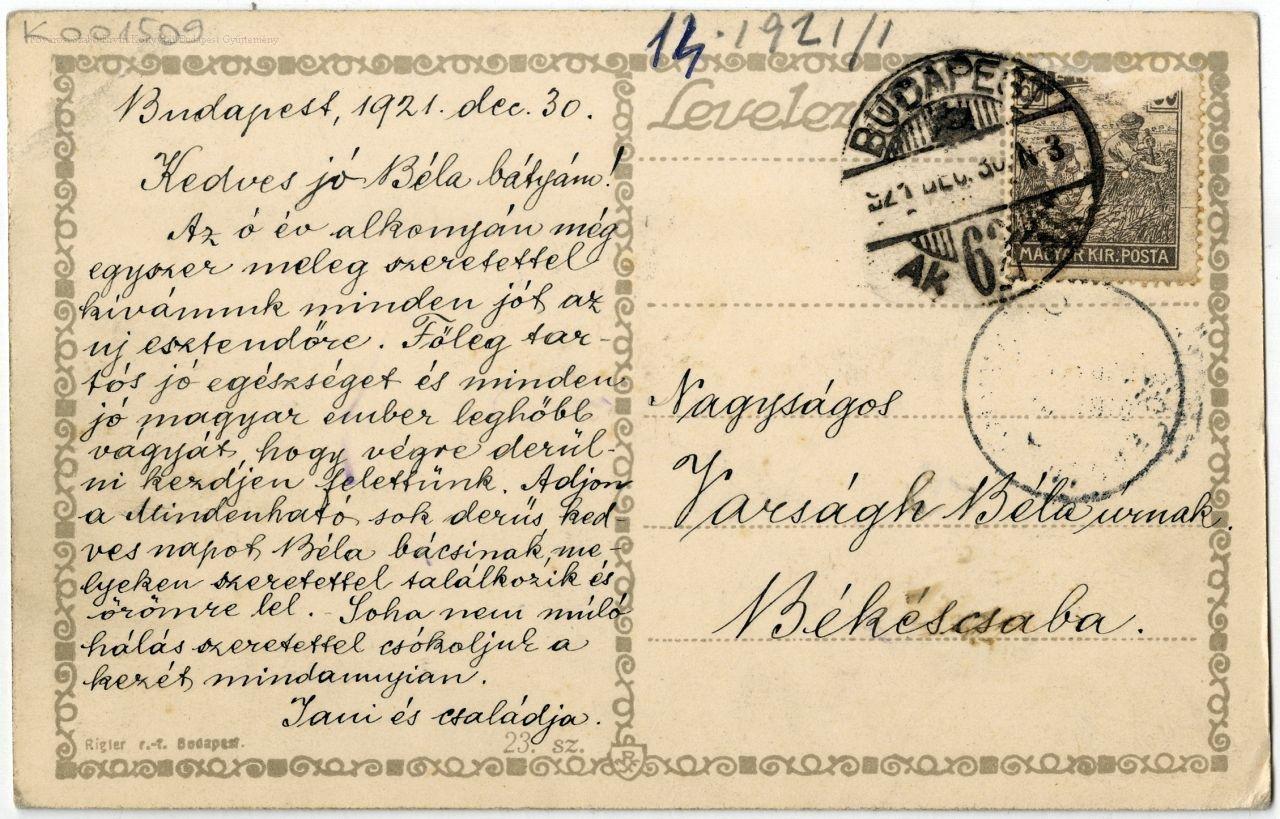 K 001509
Fővárosi Szabó Ervin Könyvtár Budapest Gyűjtemény
14. 1921/1
Budapest, 1921. dec. 30.
Kedves jó Béla bátyám!
Az ó év alkonyán még
egyszer meleg szeretettel
kívánunk minden jót az
uj esztendőre. Főleg tar-
tós jó egészséget és minden
jó magyar ember leghőbb
vágyát, hogy végre derül-
ni kezdjen felettünk. Adjon
a Mindenható sok derüs, ked-
ves napot Béla bácsinak, me-
lyeken szeretettel találkozik és
örömre lel. - Soha nem múló
hálás szeretettel csókoljuk a
kezét mindannyian.
Jani és családja.
Rigler r.-t. Budapest.
23. sz.
Levelez
BUDAPEST
921 DEC. 30. N 3
AK 62
MAGYAR KIR. POSTA
Nagyságos
Varságh Béla urnak.
Békéscsaba.